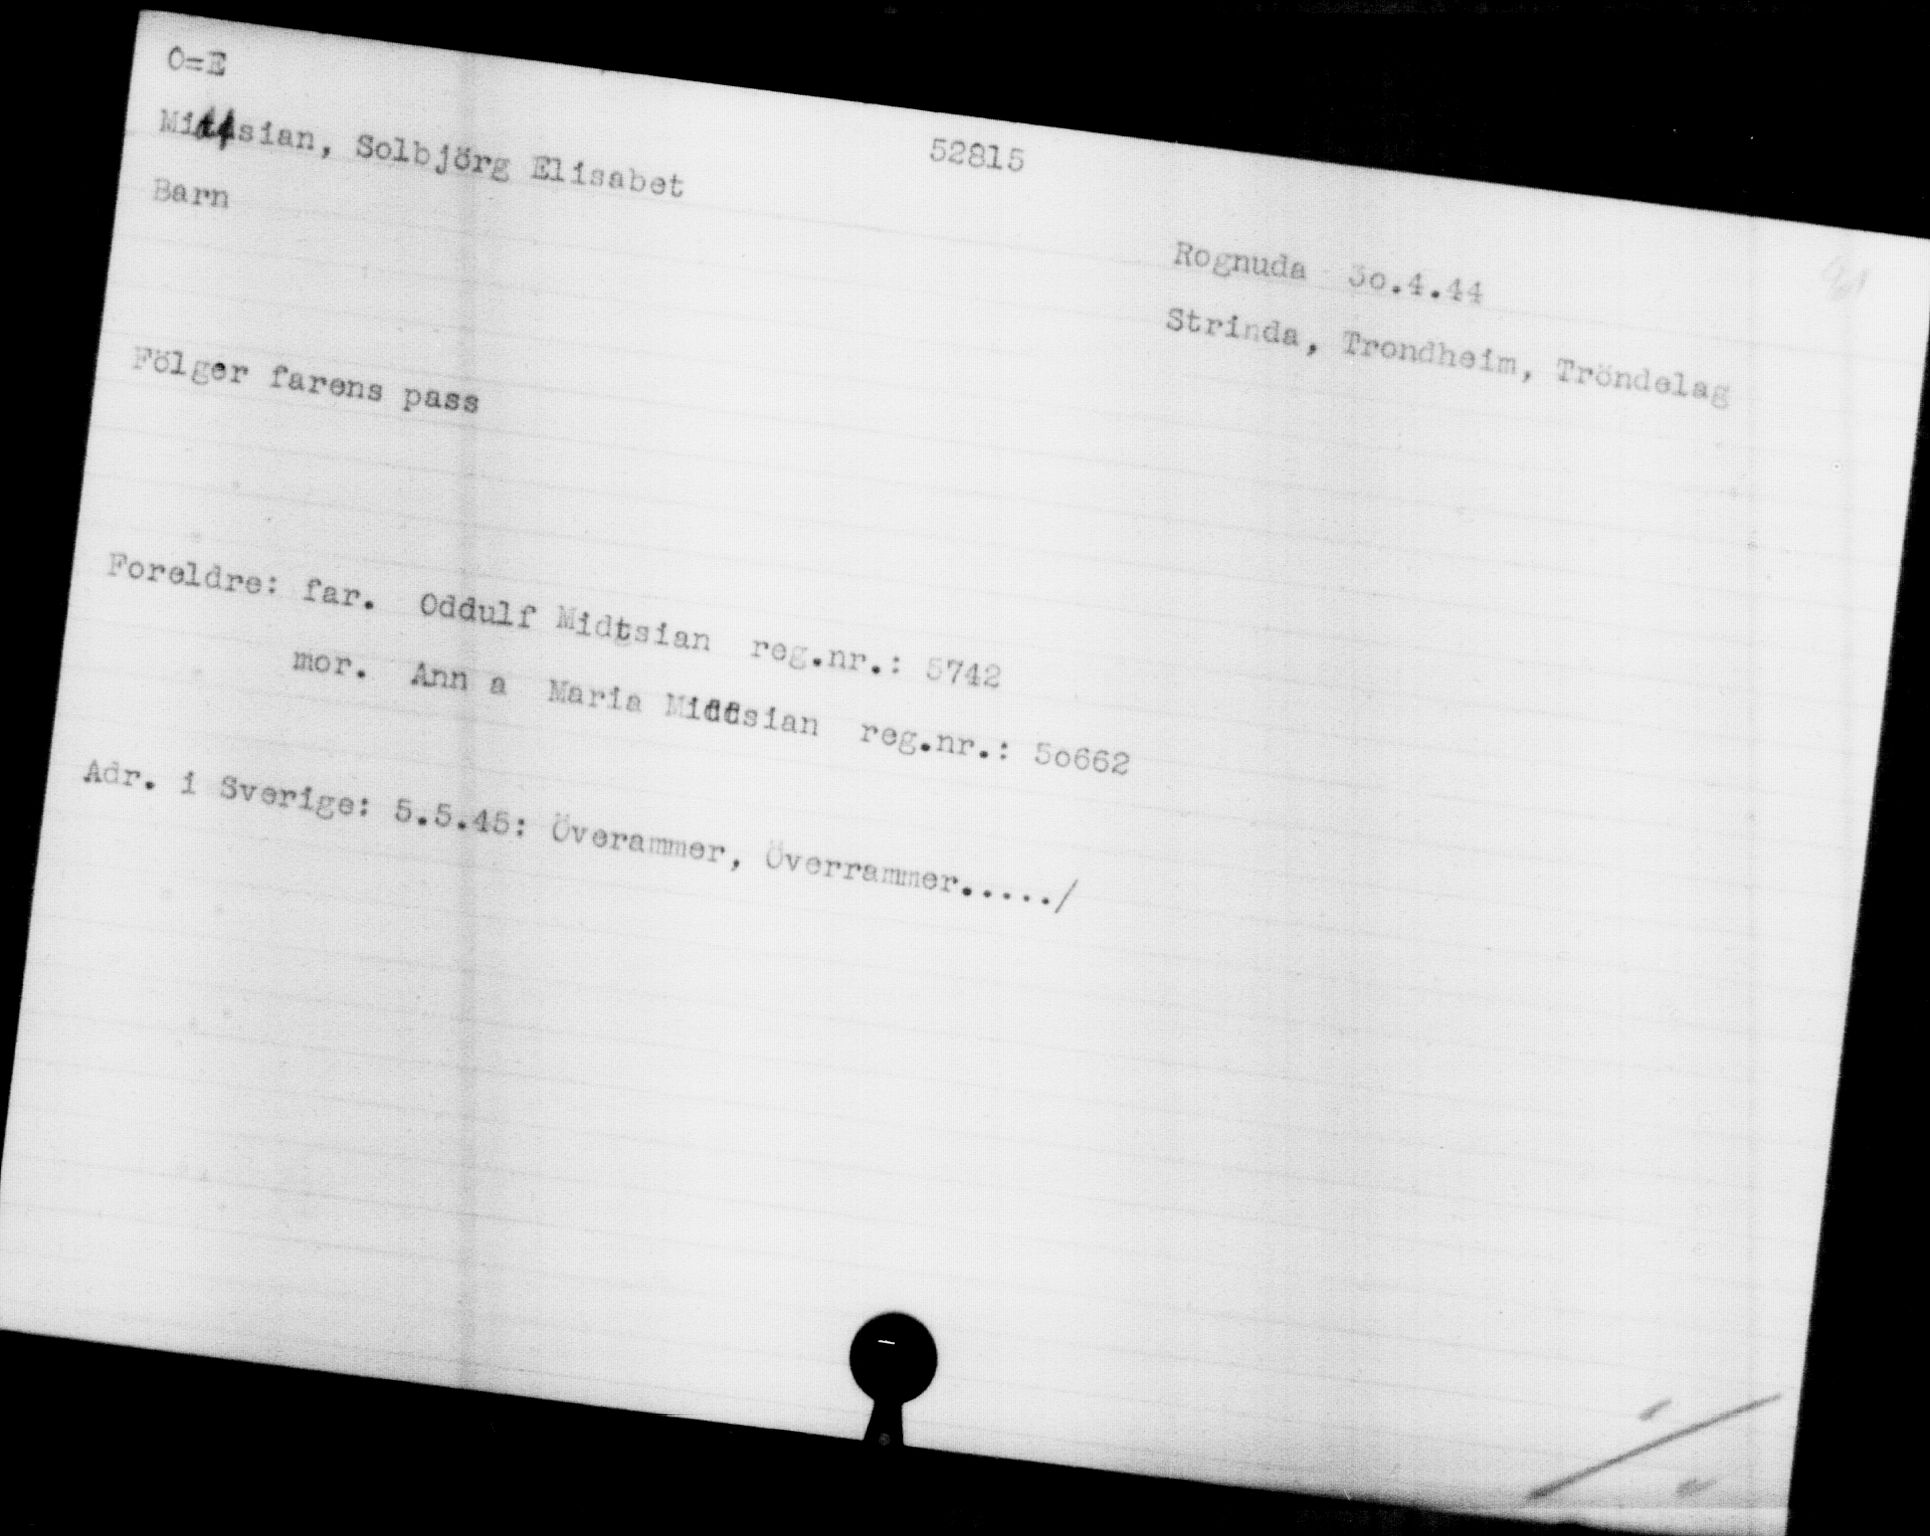 O=E
Midtsian, Solbjörg Elisabet 52815
Barn
Rognuda 3o.4.44
Strinda, Trondheim, Tröndelag
Fölger farens pass
Foreldre: far. Oddulf Midtsian reg.nr.: 5742
mor. Ann a Maria Midtsian reg.nr.: 5o662
Adr. i Sverige: 5.5.45: Överammer, Överrammer...../